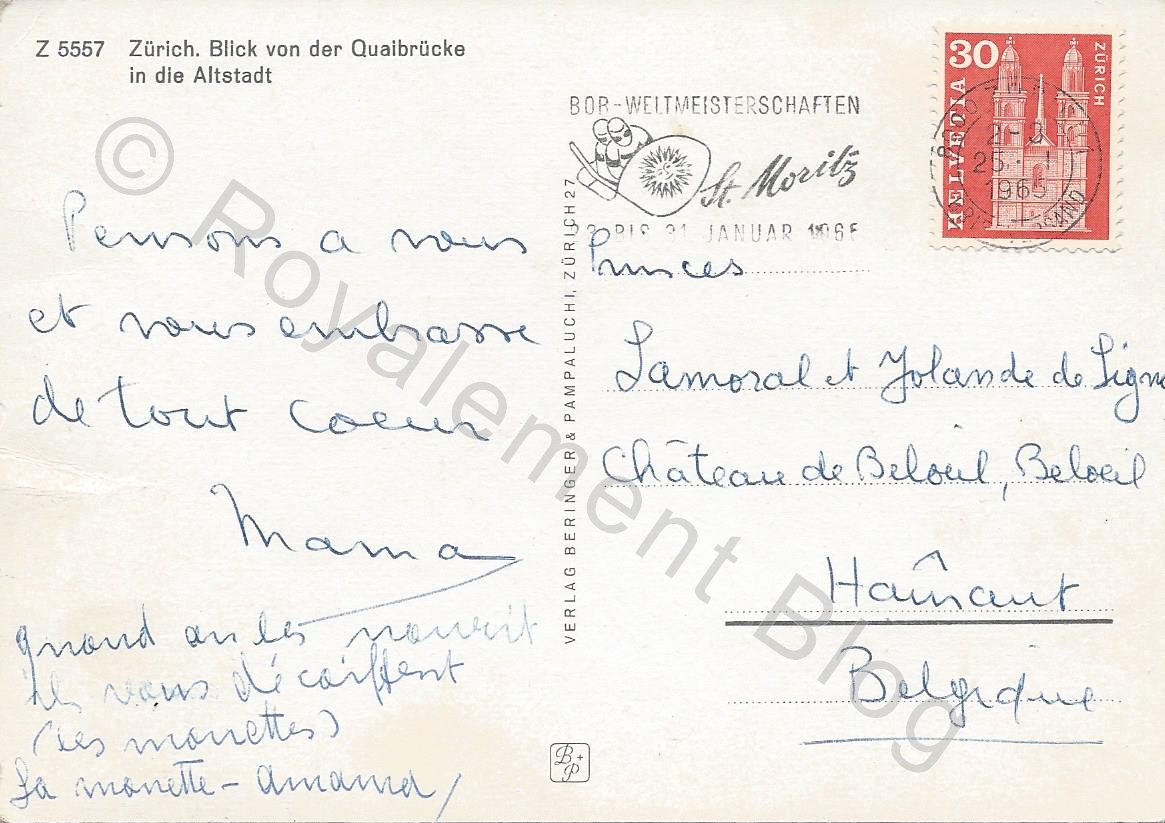 Z 5557 Zürich. Blick von der Quaibrücke
in die Altstadt
Pensons a vous
et vous embrasse
de tout coeur
Mama
quand on les nourrit
ils vous décoiffent
(les mouettes)
La mouette - Amama
VERLAG BERINGER & PAMPALUCHI, ZÜRICH 27
B+P
BOB-WELTMEISTERSCHAFTEN
St. Moritz
BIS 31 JANUAR 1965
30
HELVETIA
ZÜRICH
25.-1
1965
Princes
Lamoral et Yolande de Ligne
Château de Beloeil, Beloeil
Haînaut
Belgique
© Royalement Blog